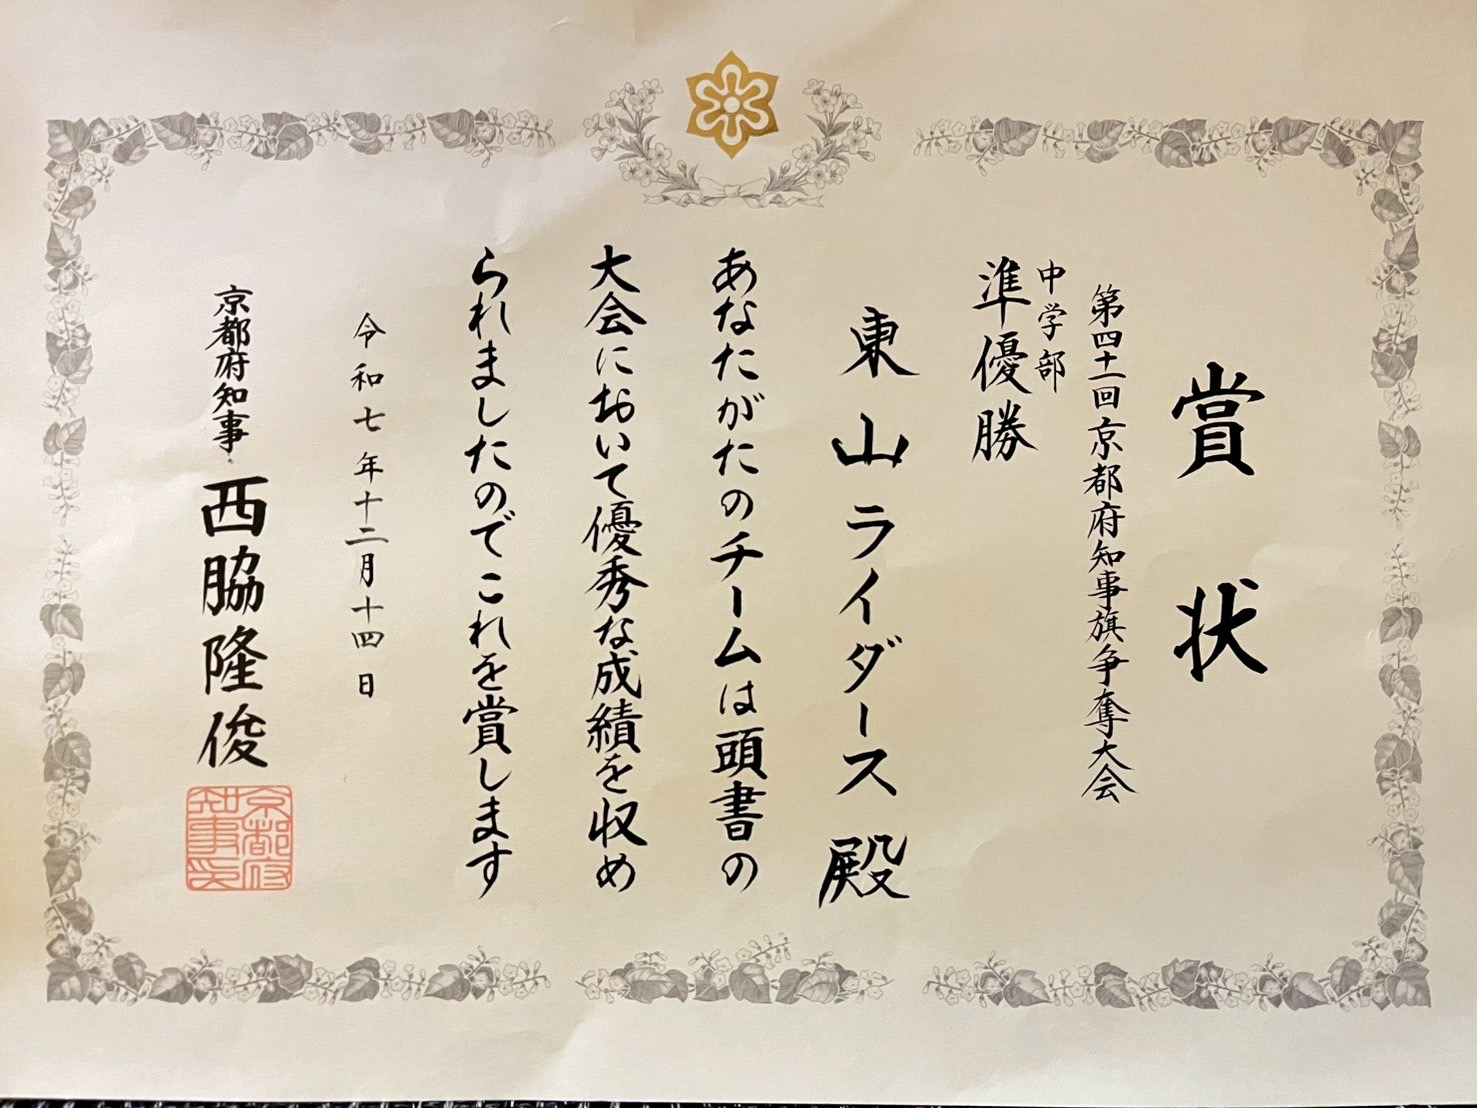 賞状
第四十一回京都府知事旗争奪大会
中学部
準優勝
東山ライダース殿
あなたがたのチームは頭書の
大会において優秀な成績を収め
られましたのでこれを賞します
令和七年十二月十四日
京都府知事 西脇隆俊
京都府知事印